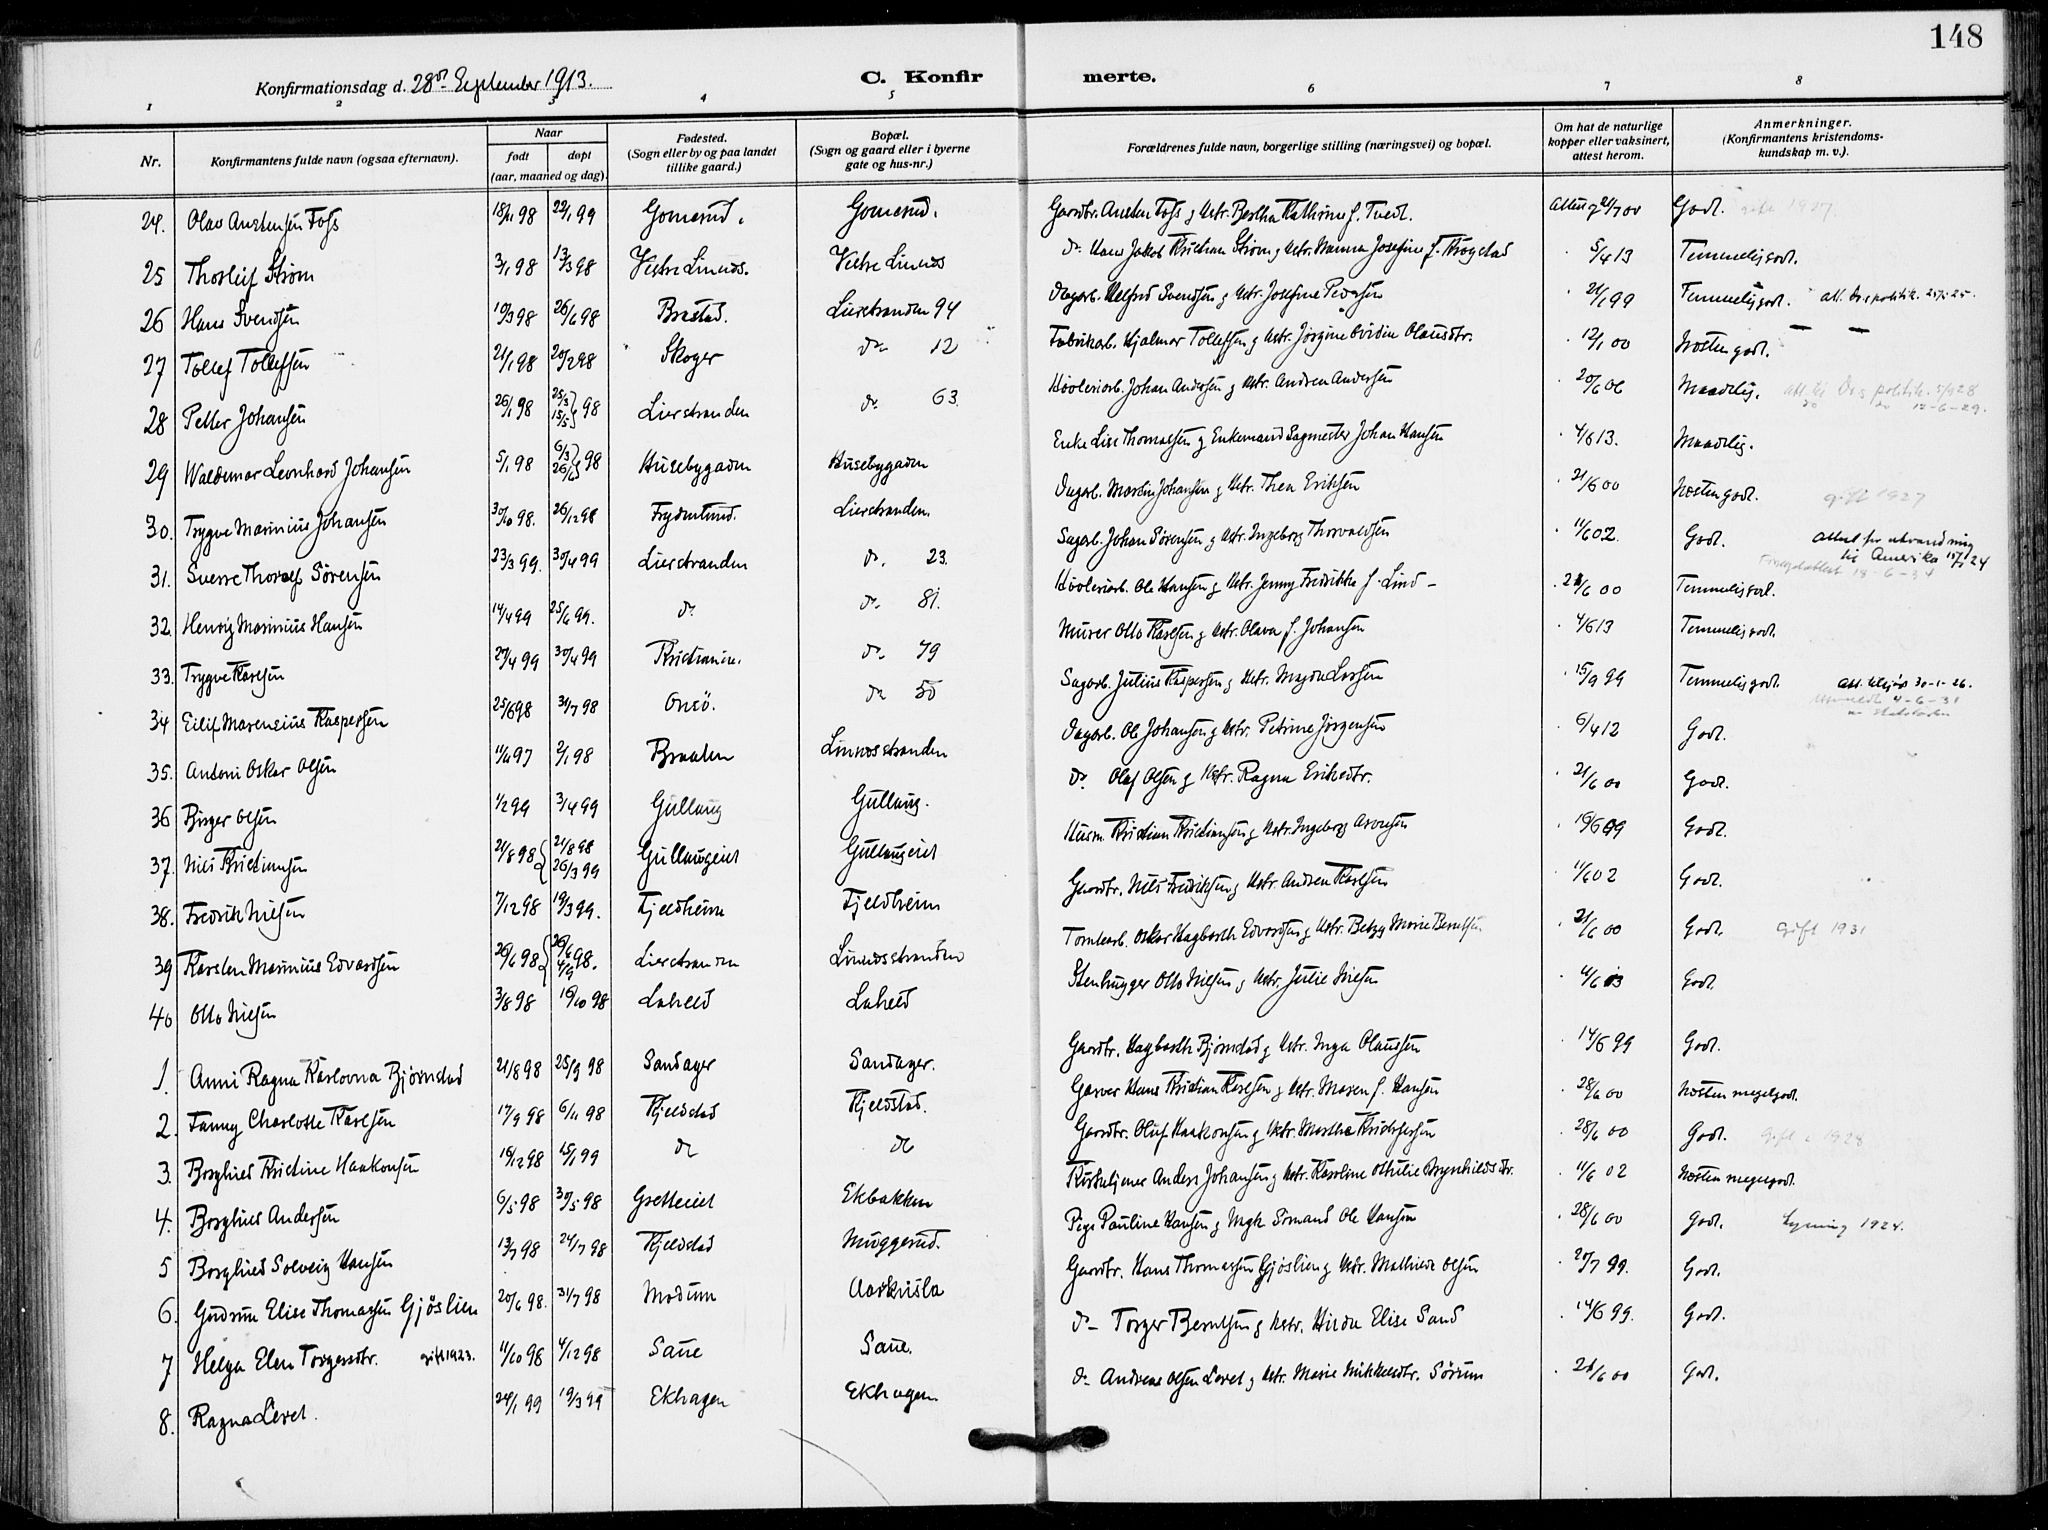 148
Konfirmationsdag d. 28de September 1913. C. Konfirmerte.
1 2 3 4 5 6 7 8
Nr. Konfirmantens fulde navn (ogsaa efternavn). Naar født døpt (aar, maaned og dag). Fødested. (Sogn eller by og paa landet tillike gaard.) Bopæl. (Sogn og gaard eller i byerne gate og hus-nr.) Forældrenes fulde navn, borgerlige stilling (næringsvei) og bopæl. Om hat de naturlige kopper eller vaksinert, attest herom. Anmerkninger. (Konfirmantens kristendoms-kundskap m. v.).
24. Olav Anstensen Foss 22/1 99 Gomerud. Gomerud. Gaardbr. Ansten Foss og Hstr. Bertha Kathrine f. Tvedt. Godt. gift 1927
25 Thorleif Strøm 3/1 98 13/3 98 Vestre Linnes. Vestre Linnes do. Hans Jakob Kristian Strøm og Hstr. Hanna Josefine f. Krogstad 5/4 13 Temmelig godt.
26 Hans Svendsen 10/3 98 26/6 98 Brastad. Lierstranden 94 Dagarb. Helfred Svendsen og Hstr. Josefine 21/1 99 Temmelig godt.
27 Tollef Tollefsen 21/1 98 20/2 98 Skoger do 12 Fabrikarb. Hjalmar Tollefsen og Hstr. Jørgine Olausdtr. 12/1 00 Næsten godt.
28 Petter Johansen 26/1 98 25/3 15/5 98 Lierstranden do 63. Høvleriarb. Johan Andersen og Hstr. Andrea Andersen 20/6 06 Maadelig.
29 Waldemar Leonhard Johansen 5/1 98 6/3 26/6 98 Husebygaden Husebygaden Enke Lise Thomassen og Enkemand Sagmester Johan Hansen 4/6 13. Maadelig.
30. Trygve Marinius Johansen 30/10 98. 26/12 98 Frydenlund. Lierstranden. Dagarb. Martin Johansen og Hstr. Thea Eriksen 21/6 00 Næsten godt. gift 1927
31. Sverre Thoralf Sørensen 23/3 99. 30/4 99 Lierstranden do. 23. Sagarb. Johan Sørensen og Hstr. Ingeborg Thorvaldsen 11/6 02. Godt. Attest for utvandring til Amerika 24
32 Henrig Marinius Hansen 14/4 99 25/6 99. do do 81. Høvleriarb. Ole Hansen og Hstr. Jenny Fredrikke f. Lind 21/6 00 Temmelig godt.
33. Trygve Karlsen 30/4 99 Kristiania. do 79 Murer Otto Karlsen og Hstr. Olava f. Johansen 4/6 13 Temmelig godt.
34 Eilif Marensius Kaspersen 25/6 98 31/7 98 Onsö. do 50 Sagarb. Julius Kaspersen og Hstr. Magda Larsen 15/9 99 Temmelig godt. 30-1-26.
35. Antoni Oskar Olsen 2/1 98 Braaten Linnesstranden Dagarb. Ole Johansen og Hstr. Petrine Jörgensen 6/4 12 Godt.
36 Birger Olsen 1/2 99 3/4 99 Gullaug Gullaug. do. Olaf Olsen og Hstr. Ragna Eriksdtr. 21/6 00 Godt.
37. Nils Kristiansen 21/8 98 21/8 98 26/3 99 Gullaugeiet Gullaugeiet Husm. Kristian Kristiansen og Hstr. Ingeborg Arvesen Godt.
38. Fredrik Nilsen 7/12 98 19/3 99. Fjeldheim Fjeldheim Gaardbr. Nils Fredriksen og Hstr. Andrea Karlsen 11/6 02 Godt.
39 Karsten Marinius Edvardsen 26/6 98 26/6 4/9 98. Lierstranden Linnesstranden Tomtearb. Oskar Hagbarth Edvardsen og Hstr. Betzy Marie Berntsen 21/6 00 Godt. Gift 1931
40 Otto Nilsen 3/8 98 16/10 98 Laheld Laheld Stenhugger Otto Nilsen og Hstr. Julie Nilsen 4/6 13 Godt.
1. Anni Ragna Karlovna Bjørnstad 21/8 98 25/9 98 Sandager Sandager. Gaardbr. Hagbarth Bjørnstad og Hstr. Inga Olaussen 14/6 99 Godt.
2. Fanny Charlotte Karlsen 17/9 98 6/11 98 Kjeldstad Kjeldstad. Garver Hans Kristian Karlsen og Hstr. Maren f. Hansen 28/6 00 Næsten meget godt.
3. Borghild Kristine Haakonsen 16/12 98 15/1 99 do do Gaardbr. Oluf Haakonsen og Hstr. Marthe Kristophersen 28/6 00 Godt. Gift 1928
4. Borghild Andersen 6/5 98 30/5 98 Gretteeiet Ekbakken Kirketjener Anders Johansen og Hstr. Karoline Othilie Brynhildsdtr. 11/6 02 Næsten meget godt.
5 Borghild Solveig Hansen 13/7 98 24/7 98 Kjeldstad Muggerud. Pige Pauline Hansen og Ungk. Sømand Ole Hansen 28/6 00 Godt. Lysning 1924.
6. Gudrun Elise Thomassen Gjøslien 20/6 98. 31/7 98 Modum Aarkvisla Gaardbr. Hans Thomassen Gjøslien og Hstr. Mathilde Olsen 20/7 99. Godt.
7 Helga Elen Torgersdtr. gift 1923. 11/10 98 4/12 98 Saue Saue. do Torger Berntsen og Hstr. Hilda Elise Sand 14/6 99. Godt.
8. Ragna Levet. 24/1 99 19/3 99 Ekhagen Ekhagen. do Andreas Olsen Levet og Hstr. Marie Mikkelsdtr. Sørum 21/6 00 Godt.